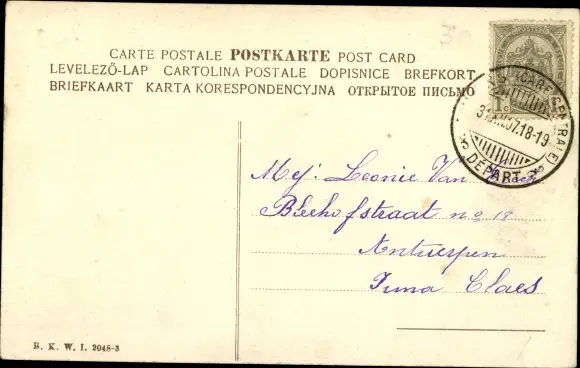 CARTE POSTALE POSTKARTE POST CARD
LEVELEZŐ-LAP CARTOLINA POSTALE DOPISNICE BREFKORT
BRIEFKAART KARTA KORESPONDENCYJNA ОТКРЫТОЕ ПИСЬМО
1c
(GARE CENTRALE)
07.18-19
DEPART
Mej: Leonie Van
Bleekhofstraat no 18
Antwerpen
Irma Claes
B. K. W. I. 2048-3